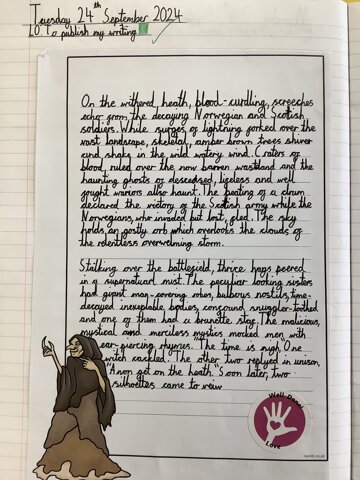 Tuesday 24th September 2024
LO To publish my writing.
On the withered, heath, blood-curdling, screeches
echo from the decaying Norwegian and Scotish
soldiers. While surges of lightning forked over the
vast landscape, skeletal, amber brown trees shiver
and shake in the wild watery wind. Craters of
blood ruled over the now barren wastland and the
haunting ghosts of descetised, lifeless and well
fought warriors also haunt. The beating of a drum
declared the victory of the Scottish army while the
Norwegians, who invaded but lost, fled. The sky
holds, an gostly orb which overlooks the clouds of
the relentless overwelming storm.
Stalking over the battlefield, thrice hags peered
in a supernatural mist. The peculiar looking sisters
had gigant man-covering robes, bulbous nostrils, time-
decayed inexeptable bodies,
and one of them had a brunette stay. The malicious,
mystical and merciless mystics mocked men with
ear-piercing rhymes. "The time is nigh." One
witch cackled. The other two replyed in unison,
"Anon get on the heath." Soon later, two
silhoettes came to veiw
Well Done!
Love
twinkl.co.uk